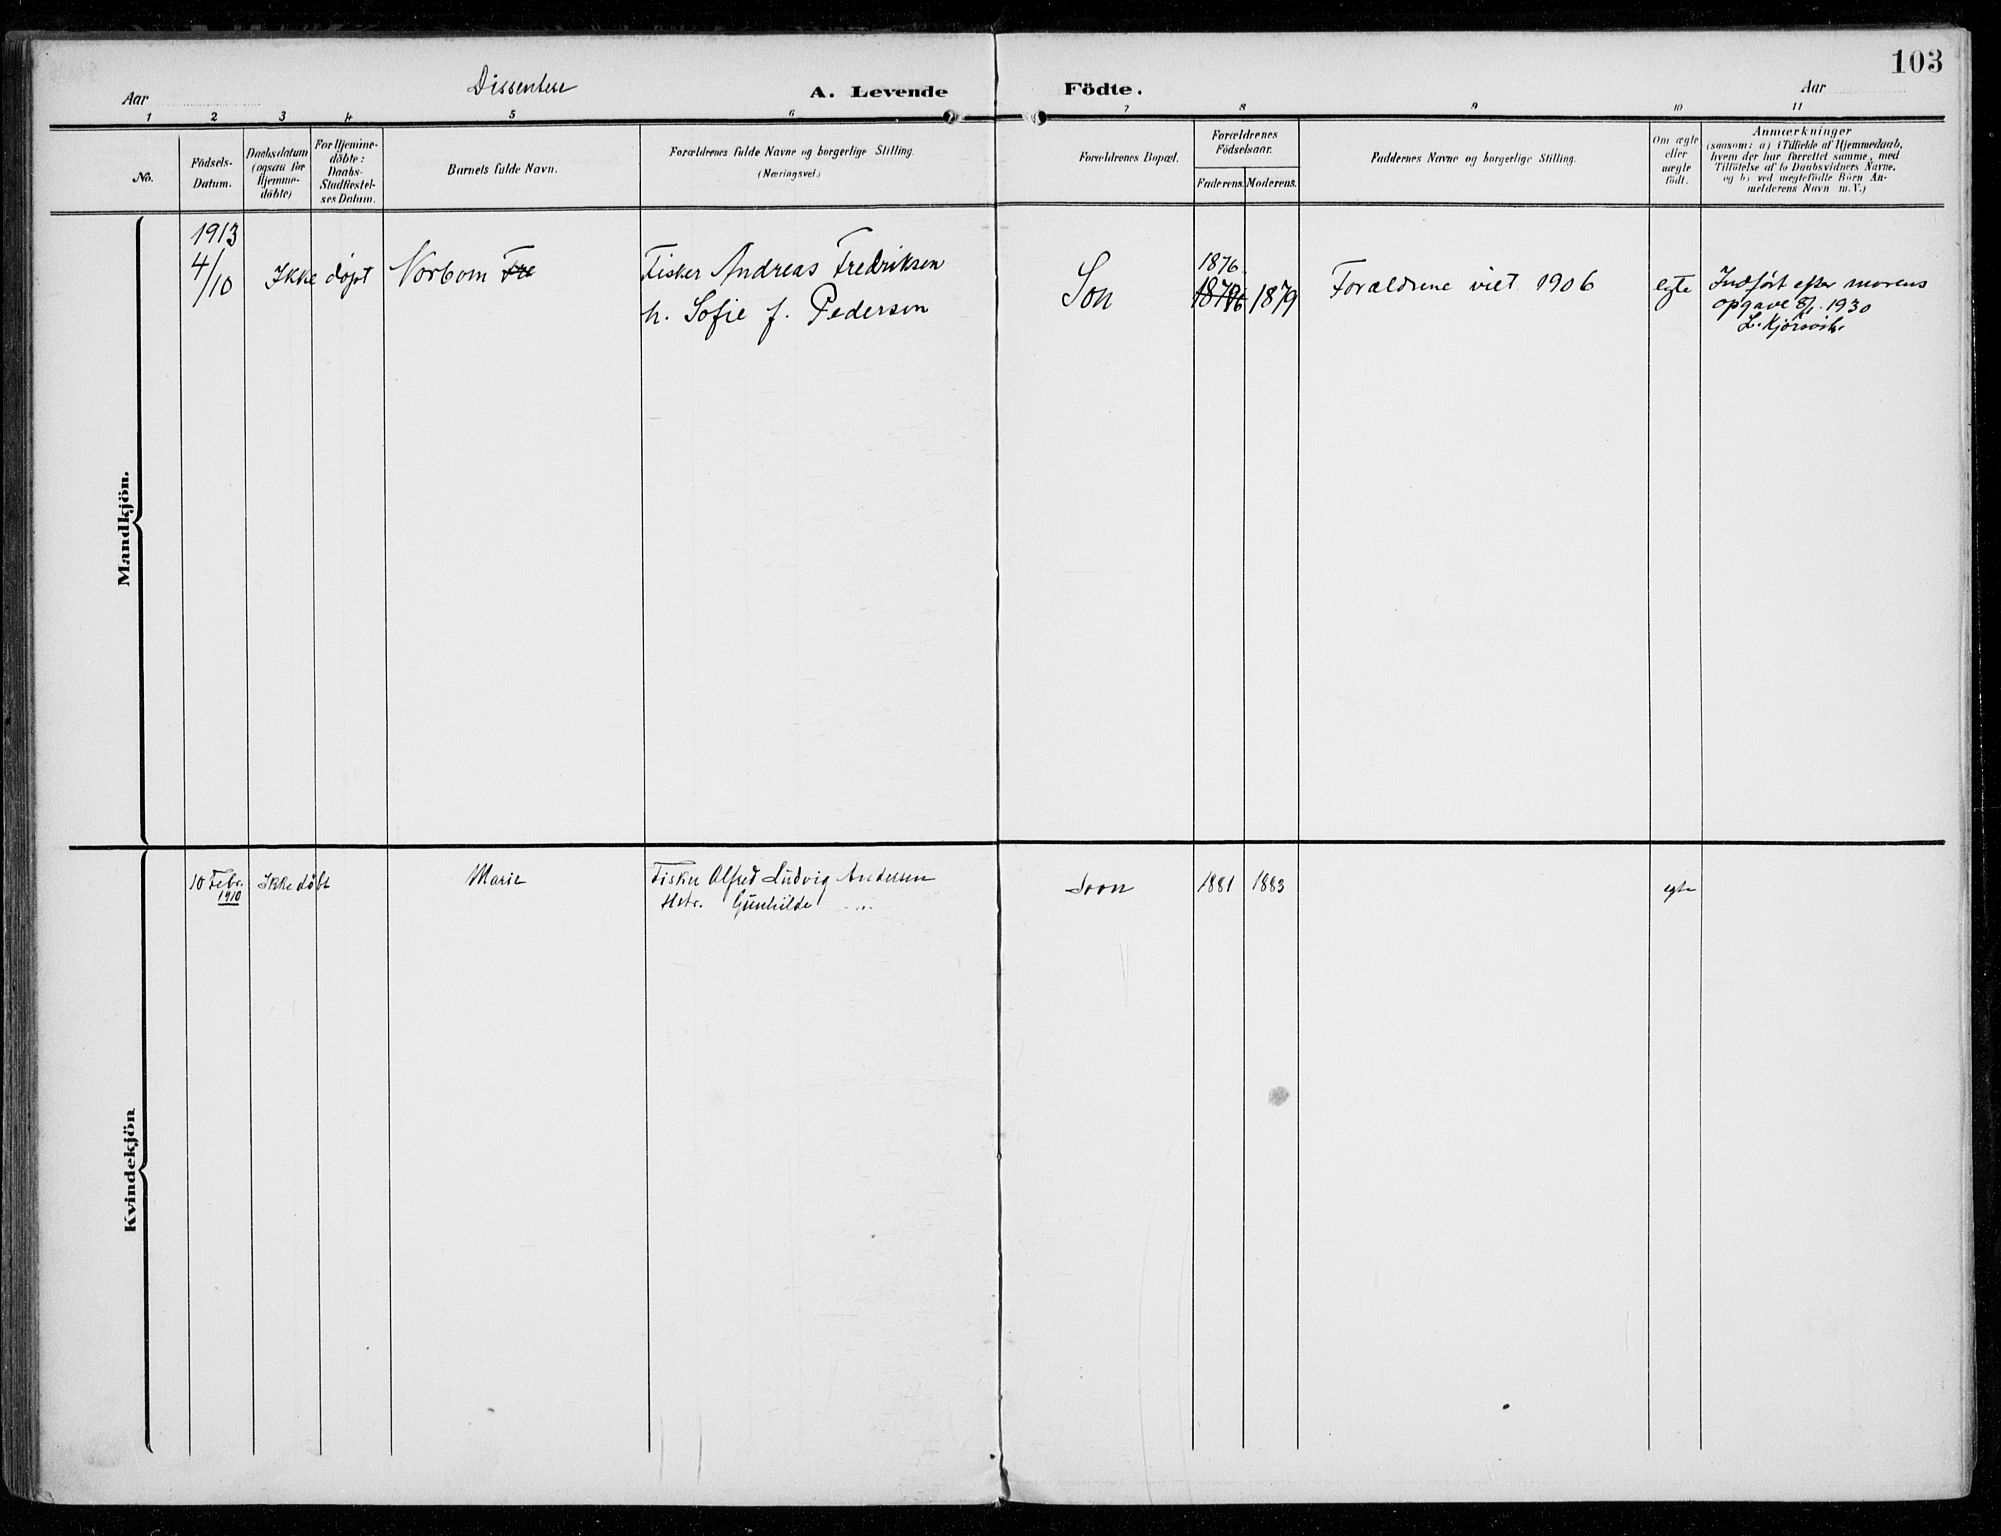 103
Aar
Dissentere
A. Levende
Födte.
Aar
1 2 3 4 5 6 7 8 9 10 11
No.
Födsels-
Datum.
Daabsdatum
(ogsaa for
Hjemme-
döbte)
For Hjemme-
döbte:
Daabs-
Stadfæstel-
ses Datum.
Barnets fulde Navn.
Forældrenes fulde Navne og borgerlige Stilling.
(Næringsvei.)
Forældrenes Bopæl.
Forældrenes
Födselsaar.
Faderens. Moderens.
Faddernes Navne og borgerlige Stilling.
Om ægte
eller
uægte
födt.
Anmærkninger
(saasom: a) i Tilfælde af Hjemmedaab,
hvem der har forrettet samme, med
Tilföielse af to Daabsvidners Navne.
og b) ved uægtefödte Börn An-
melderens Navn m. V.)
Mandkjön.
1913
4/10
Ikke døpt
Norbom Fre
Fisker Andreas Fredriksen
h. Sofie f. Pedersen
Son
1876
1879
Forældrene viet 1906
egte
Indført efter morens
opgave 8/1. 1930
L. Kjørsvik.
Kvindekjön
10 Febr.
1910
Ikke døbt
Marie
Fisker Alfred Ludvig Andersen
Hstr. Gunhilde
Soon
1881 1883
egte